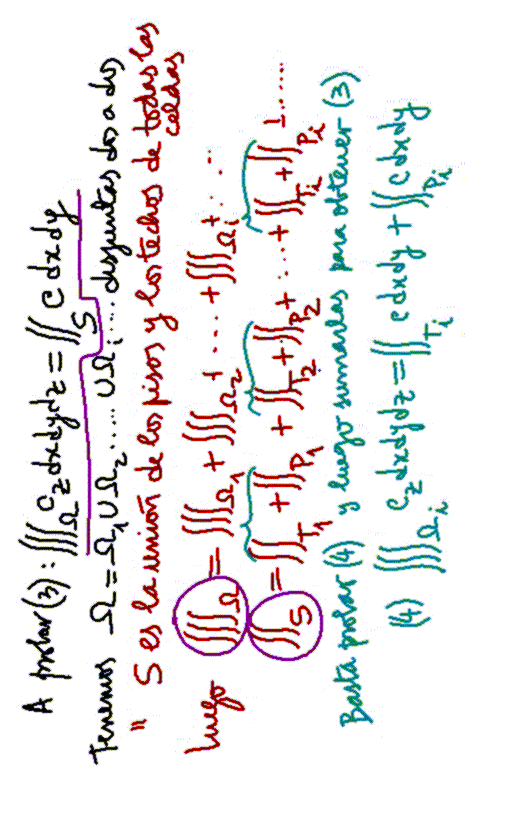 A probar (3): ∭_Ω c_z dxdydz = ∬_S c dxdy
Tenemos Ω = Ω₁ ∪ Ω₂ ..... ∪ Ω_i .... disjuntas dos a dos
" S es la unión de los pisos y los techos de todas las celdas
Luego ∭_Ω = ∭_Ω₁ + ∭_Ω₂ + .... + ∭_Ω_i + ....
∬_S = ∬_T₁ + ∬_P₁ + ∬_T₂ + ∬_P₂ + ... + ∬_T_i + ∬_P_i + .....
Basta probar (4) y luego sumarlas para obtener (3)
(4) ∭_Ω_i c_z dxdydz = ∬_T_i c dxdy + ∬_P_i c dxdy